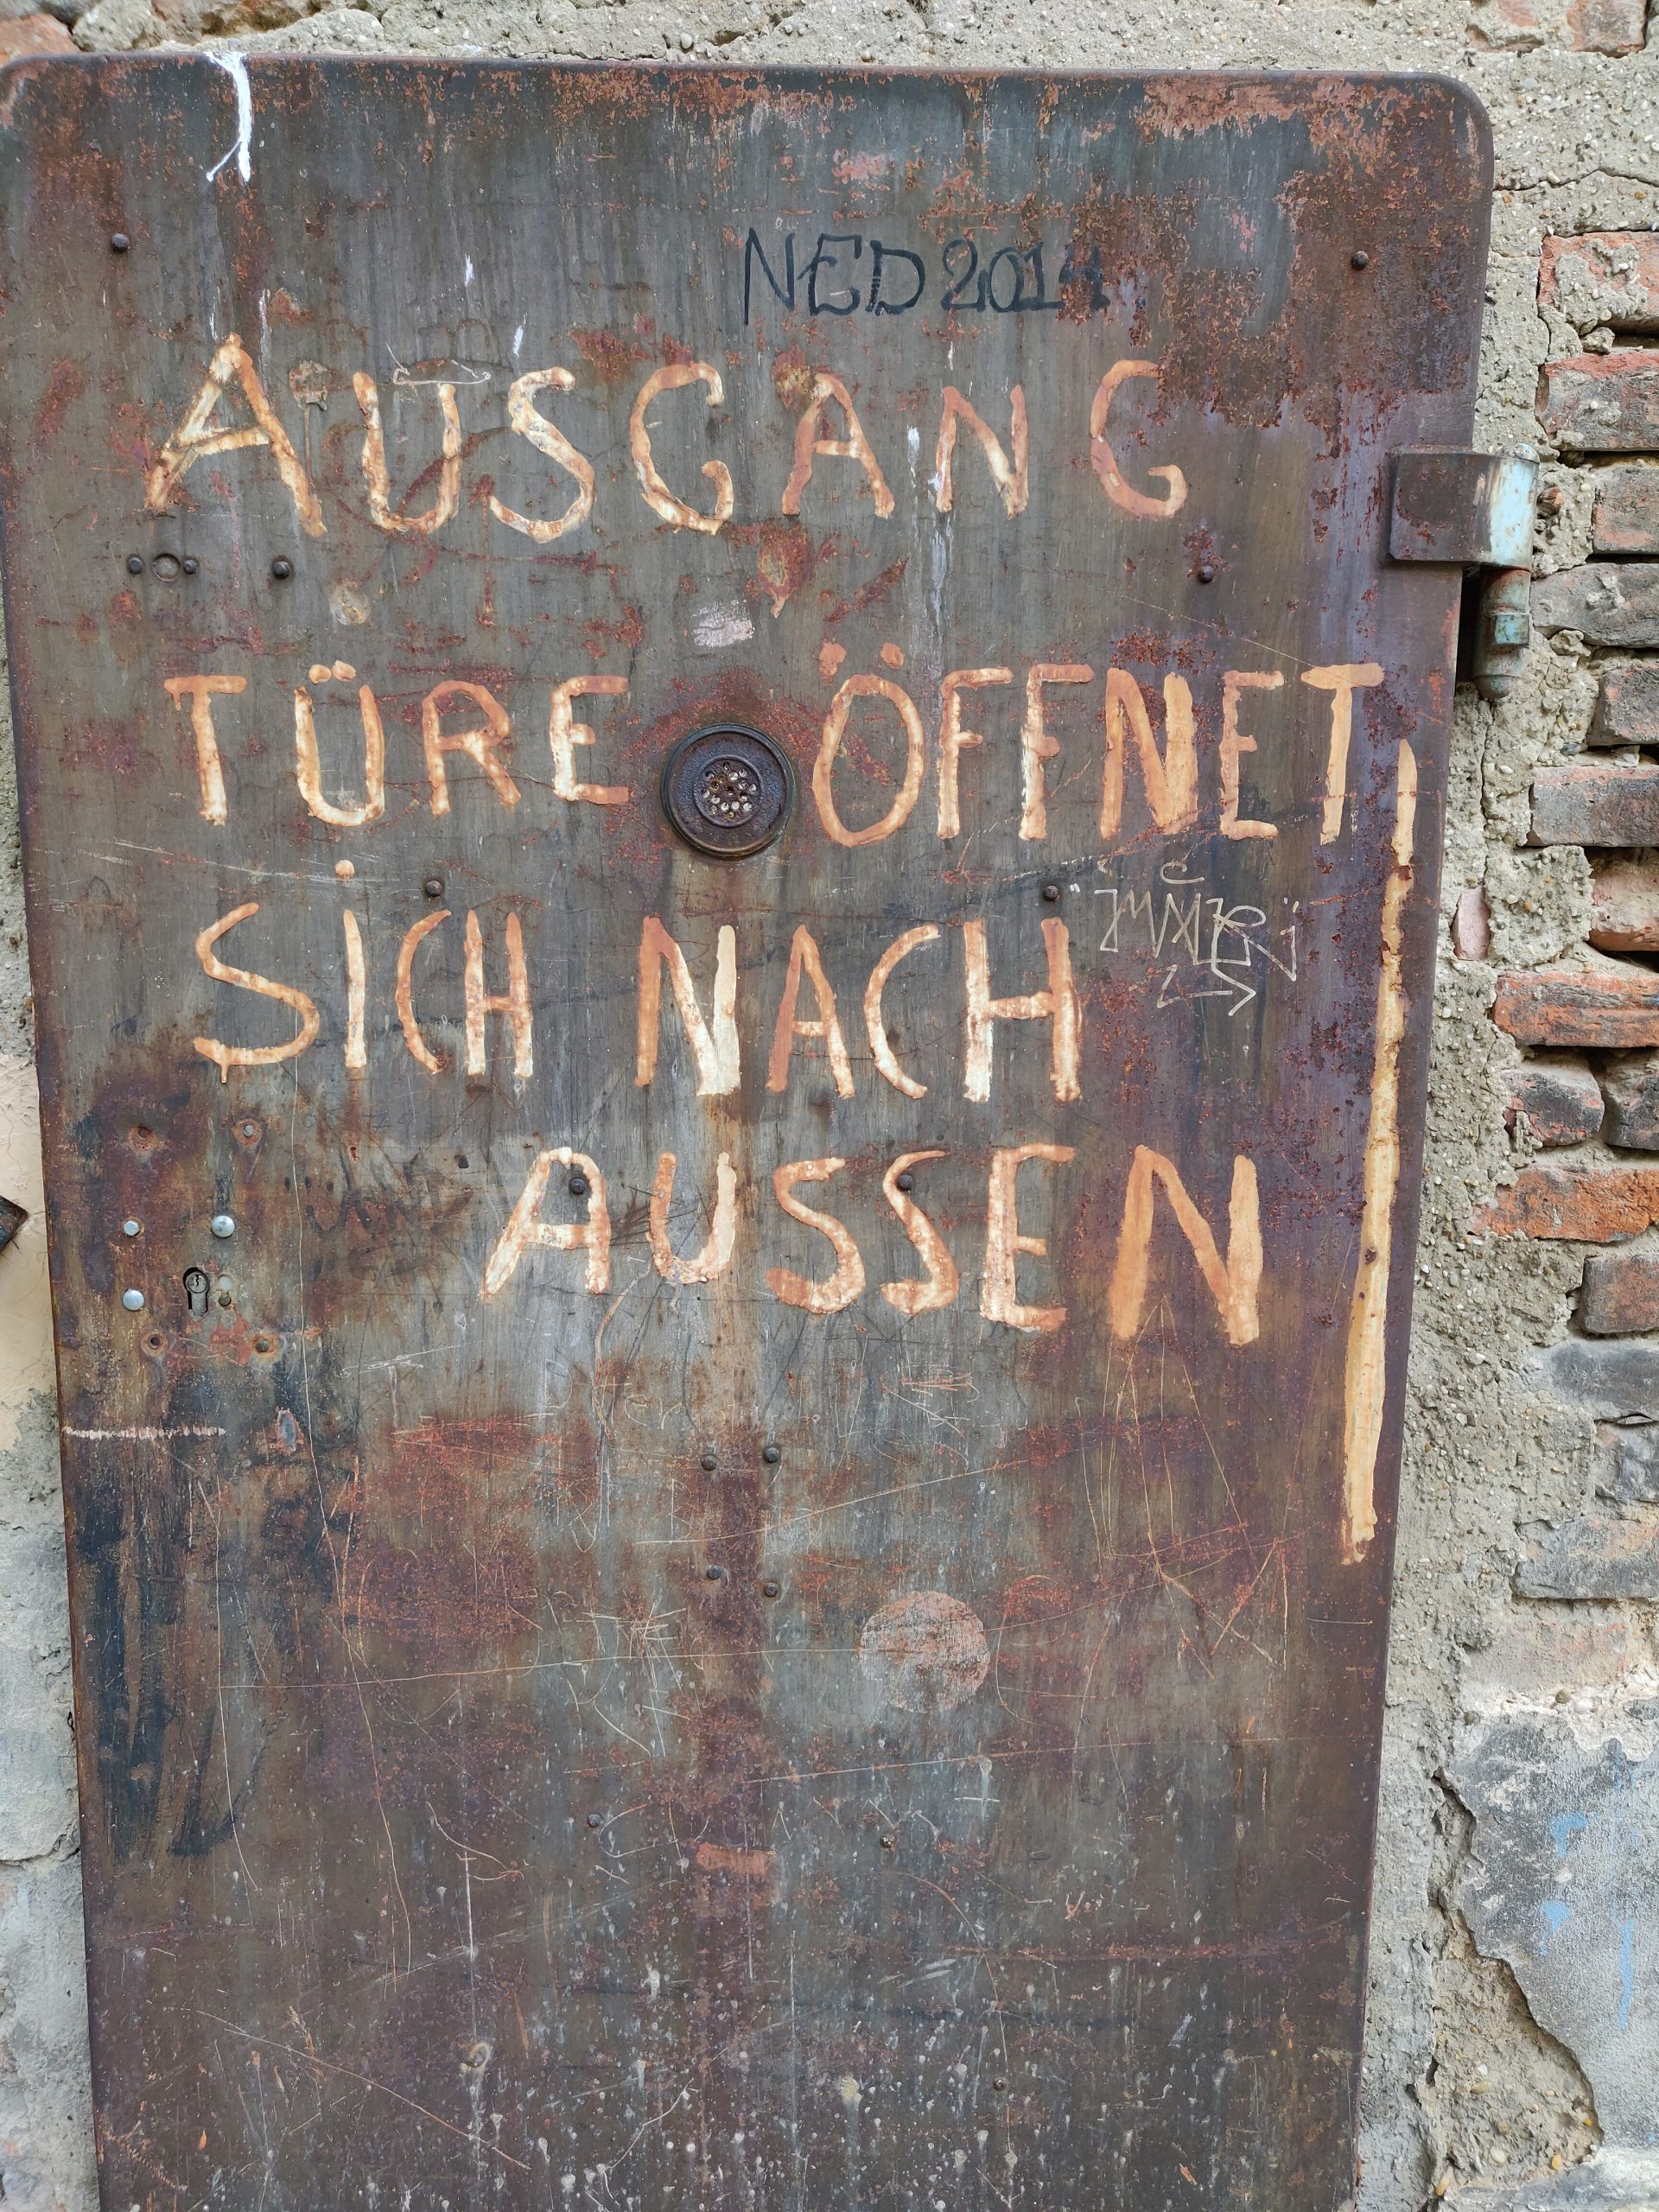 NED 2014
AUSGANG
TÜRE ÖFFNET
SICH NACH
AUSSEN